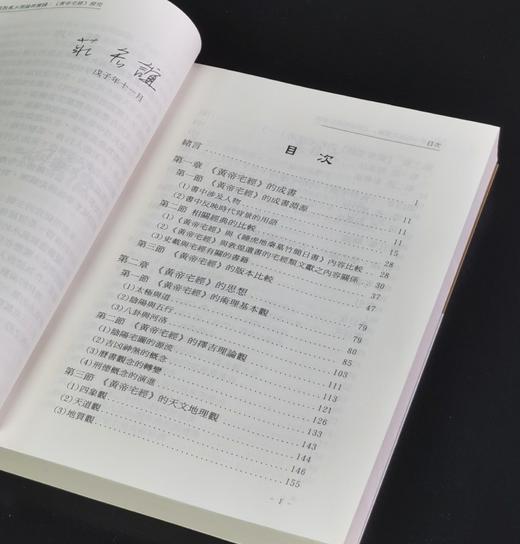 《黃帝宅經》探究
莊
戊子年十一月
目次
目 次
緒言 1
第一章 《黃帝宅經》的成書 11
第一節 《黃帝宅經》的成書淵源 11
(1)書中涉及人物 11
(2)書中反映時代背景的用語 15
第二節 相關經典的比較 28
(1)《黃帝宅經》與《睡虎地秦墓竹簡日書》內容比較 28
(2)《黃帝宅經》與敦煌遺書的宅經類文獻之內容關係 30
(3)史載與宅經有關的書籍 37
第三節 《黃帝宅經》的版本比較 47
第二章 《黃帝宅經》的思想 79
第一節 《黃帝宅經》的術理基本觀 79
(1)太極與道 80
(2)陰陽與五行 85
(3)八卦與河洛 103
第二節 《黃帝宅經》的擇吉理論觀 111
(1)陰陽宅圖的源流 113
(2)吉凶神煞的概念 121
(3)曆書觀念的轉變 126
(4)刑德概念的演進 133
第三節 《黃帝宅經》的天文地理觀 143
(1)四象觀 144
(2)天道觀 146
(3)地質觀 155
- I -